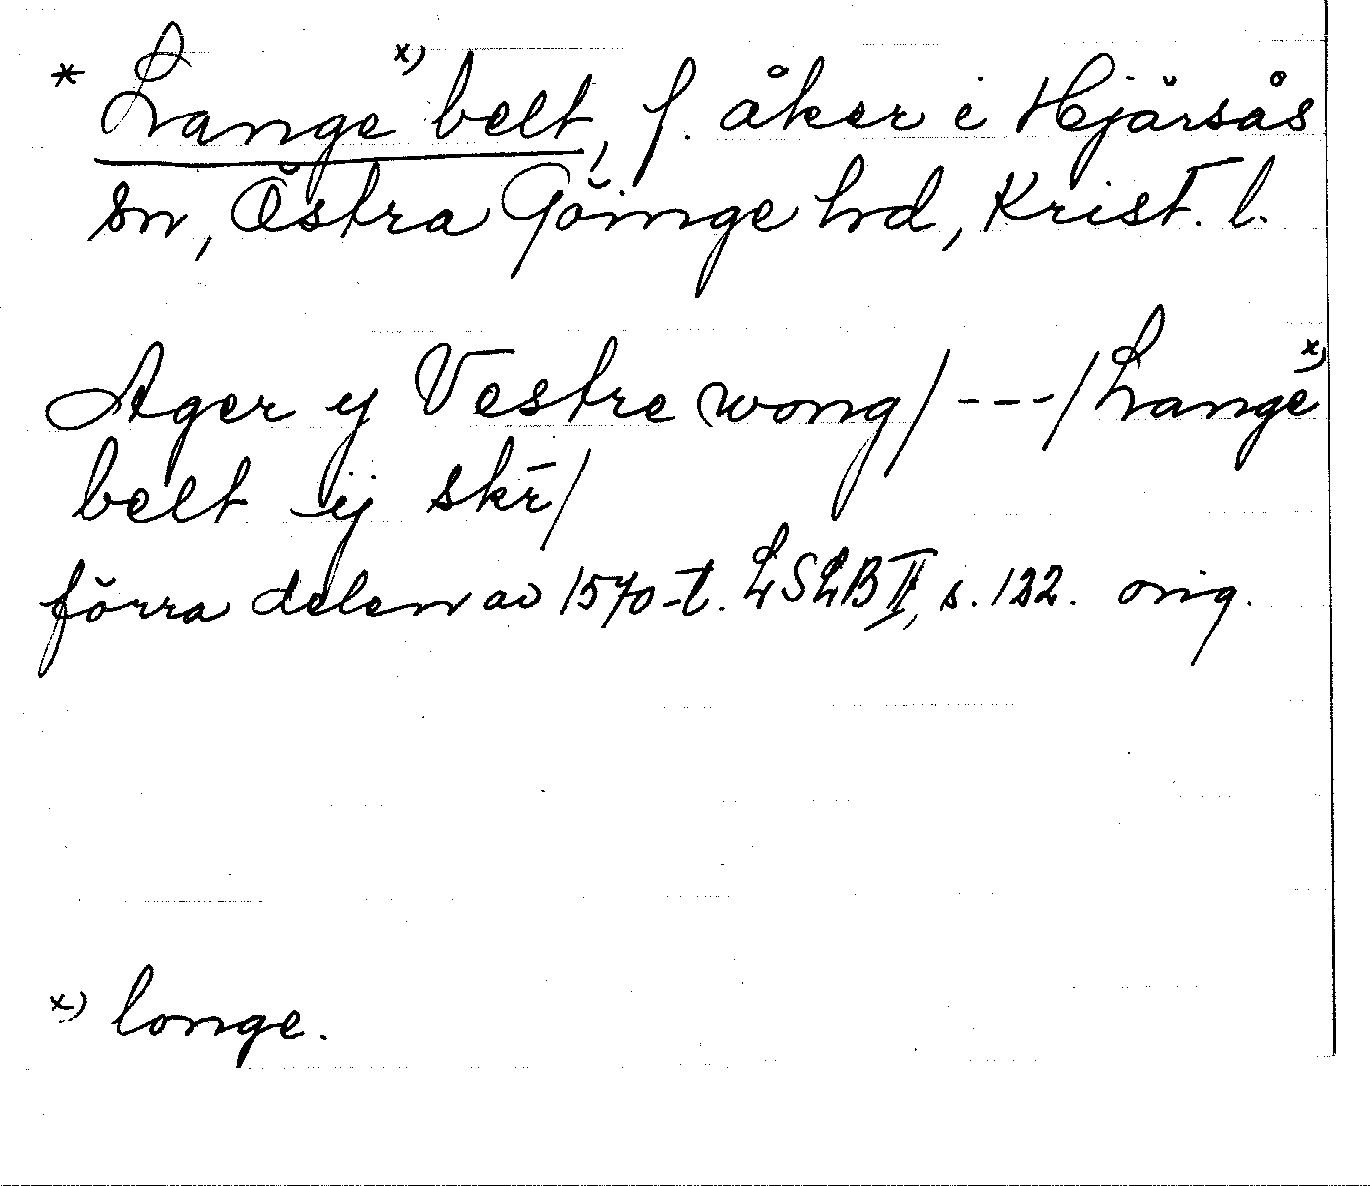 * Lange x) belt, f. åker i Hjärsås
sn, Östra Göinge hd, Krist. l.
Ager y Vestre wong/ --- / Lange x)
belt ij skr̄/
förra delen av 1570-t. LSLB II, s. 132. orig.
x) longe.